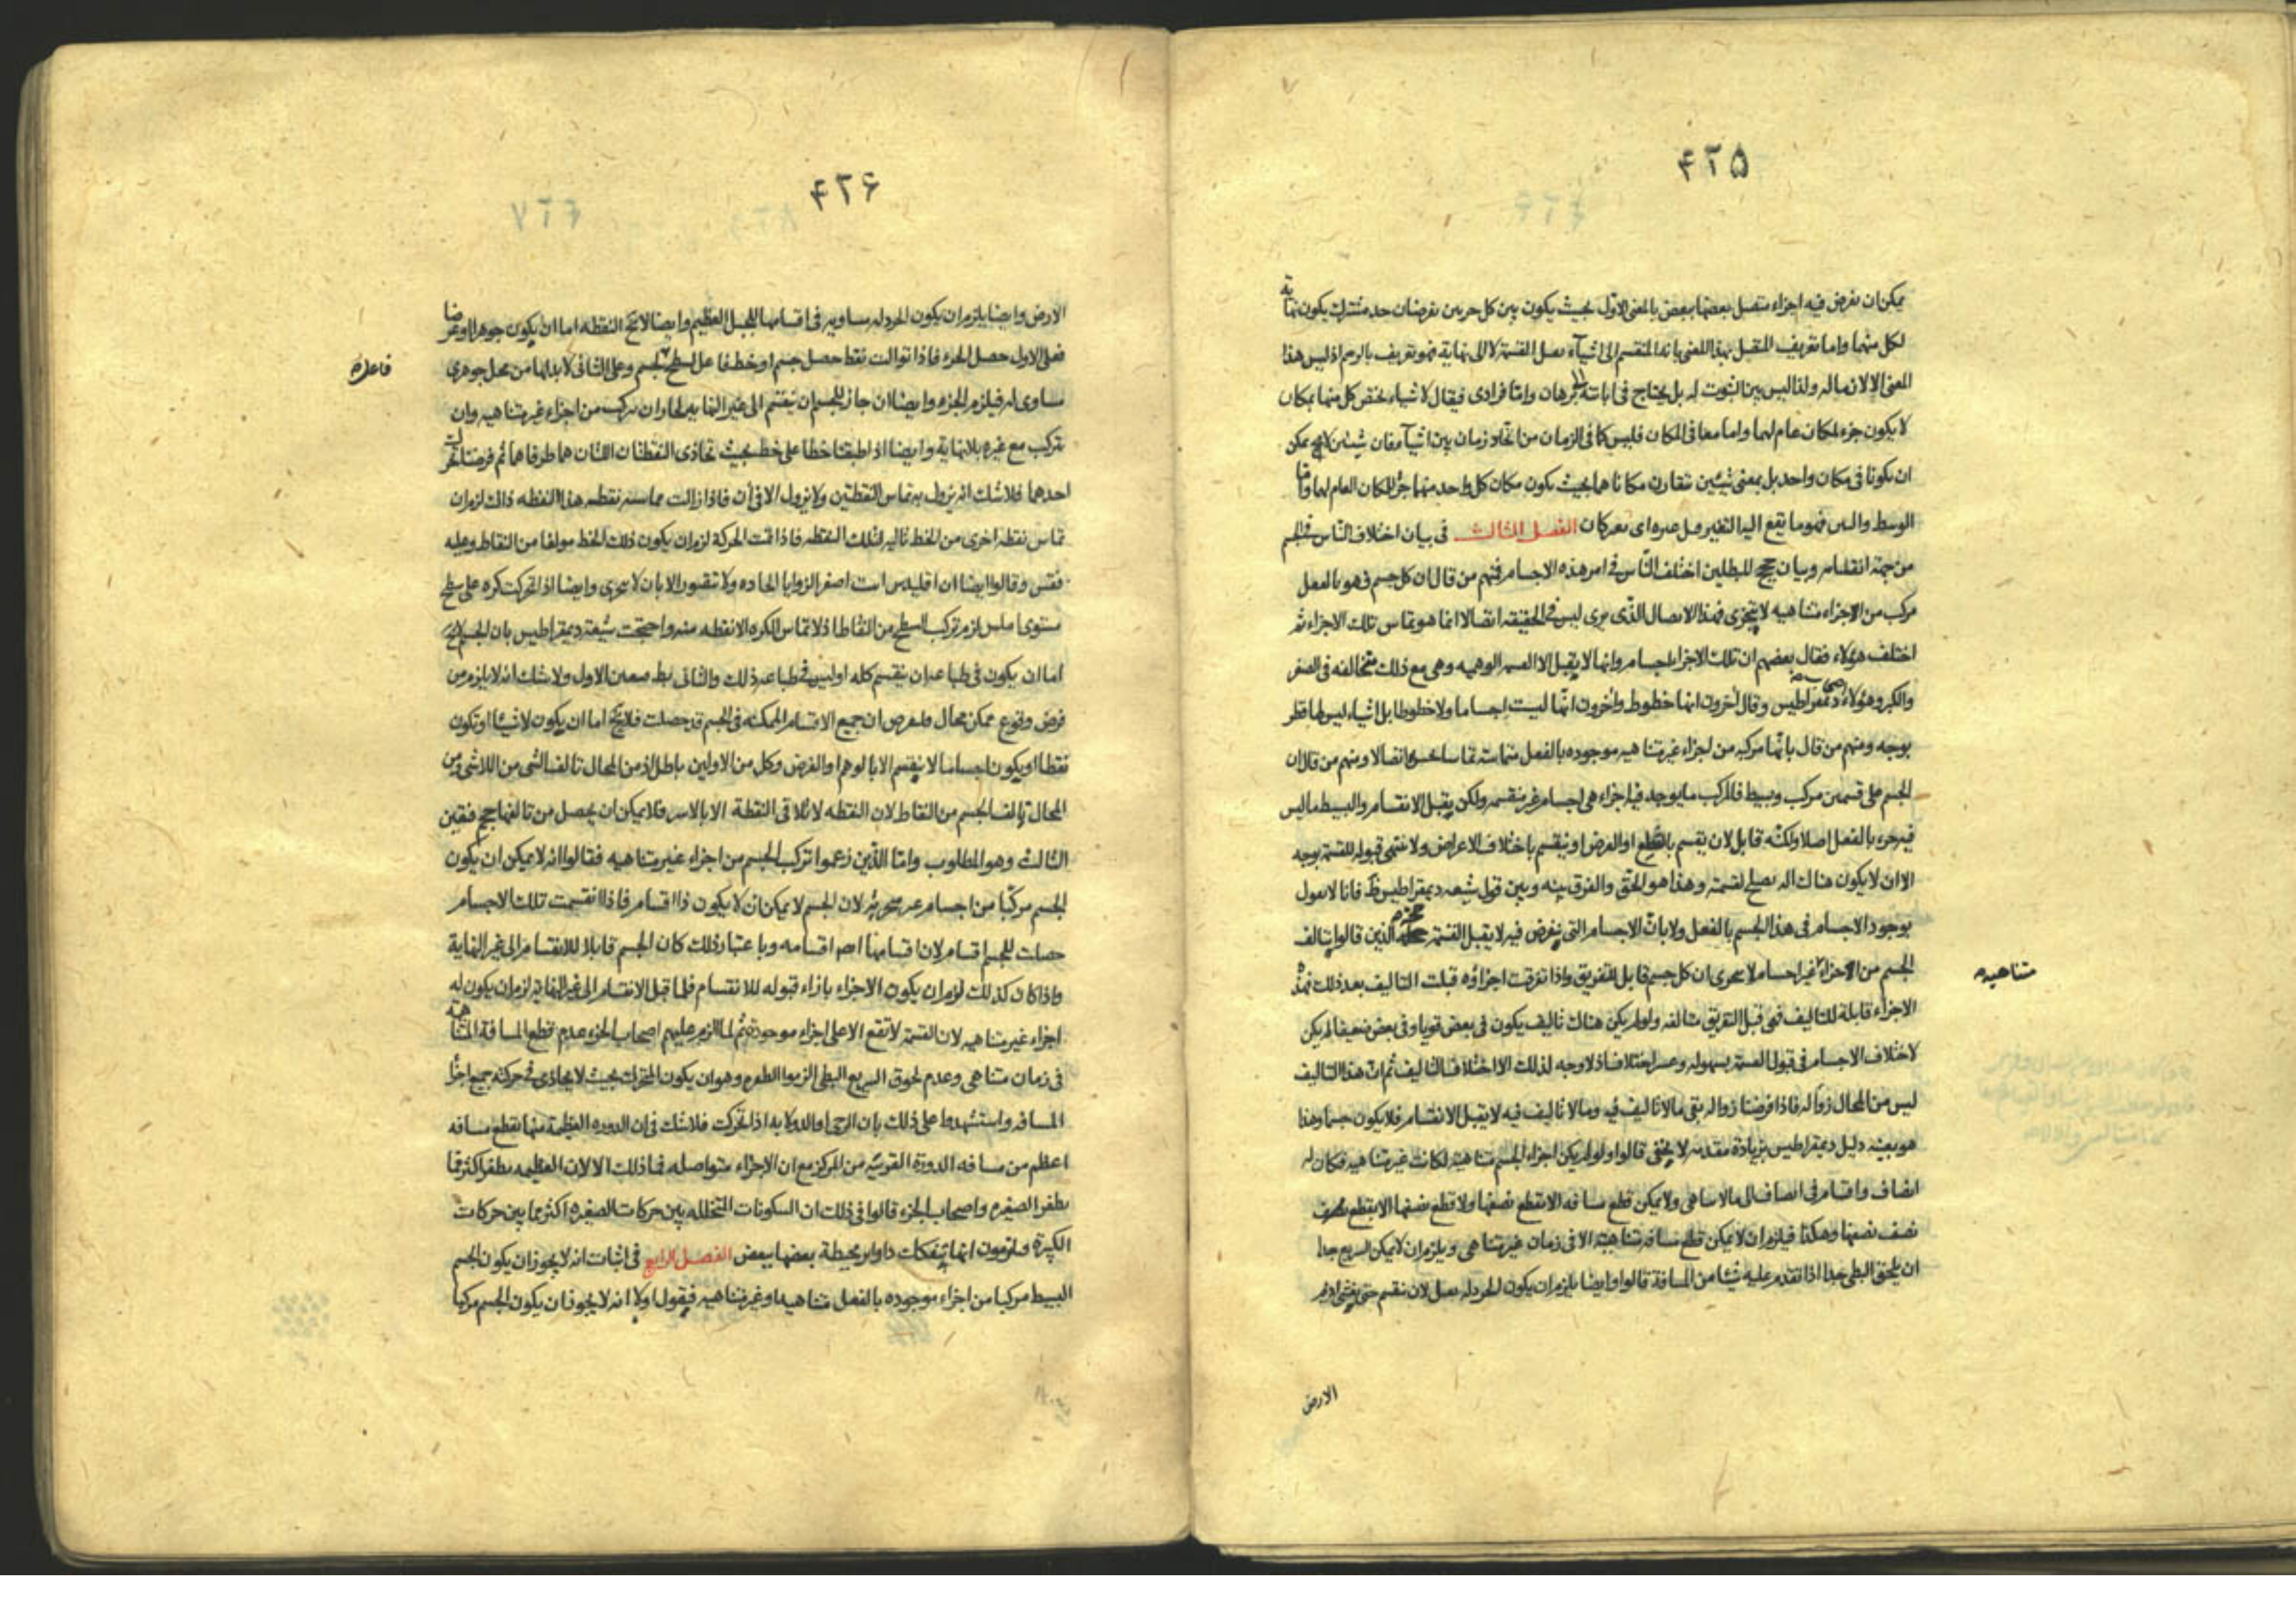 ۴۲۵
يمكن ان نفرض فيه اجزاء متصل بعضها ببعض بالمعنى الاول بحيث يكون بين كل جزين نفرضان حد مشترك يكون نهاية
لكل منهما واما تعريف المتصل بهذا المعنى بانه المنقسم الى اشياء نقبل القسمة لا الى نهاية فهو تعريف بالرسم اذ ليس هذا
المعنى الا لازما له ولذا ليس بين الثبوت له بل يحتاج فى اباتته الى برهان واما فرادى فيقال لاشياء يختص كل منها بمكان
لا يكون جزء لمكان عام لهما واما معا فى المكان فليس كما فى الزمان من اتحاد زمان بين اشياء معان شيئين لا يمكن
ان يكونا فى مكان واحد بل بمعنى شيئين تتقارن مكاناهما بحيث يكون مكان كل واحد منهما جزء للمكان العام لهما واما
الوسط والبين فهو ما يقع اليه التغير قبل غيره اى كان الفصل الثالث فى بيان اختلاف الناس فى الجسم
من جهة انقسامه وبيان حجج المبطلين اختلف الناس فى امر هذه الاجسام فمنهم من قال ان كل جسم فهو بالفعل
مركب من الاجزاء متناهيه لا يتجزى فهذا الاتصال الذى يرى ليس فى الحقيقة اتصالا انما هو تماس تلك الاجزاء ثم
اختلف هؤلاء فقال بعضهم ان تلك الاجزا اجسام وانها لا يقبل الا القسمه الوهميه وهى مع ذلك متخالفه فى الصغر
والكبر وهؤلاء ديمقراطيس وقال اخرون انها خطوط واخرون انها ليست اجساما ولا خطوطا بل اشياء ليس لها قطر
بوجه ومنهم من قال بانها مركبه من اجزاء غير متناهيه موجوده بالفعل متماسة تماسا اتصالا ومنهم من قال ان
الجسم على قسمين مركب وبسيط فالمركب ما يوجد فيه اجزاء هى اجسام غير منقسمه ولكن يقبل الانقسام والبسيط ما ليس
فيه جزء بالفعل اصلا ولكنه قابل لان يقسم بالقطع او الفرض او ينقسم باختلاف الاعراض ولا تنتهى قبوله للقسمة بوجه
الا ان لا يكون هناك اله يصلح لقسمته وهذا هو الحق والفرق بينه وبين قول شيعه ديمقراطيس ظ فانا لا نقول
بوجود الاجسام فى هذا الجسم بالفعل ولا بان الاجسام التى يفرض فيه لا يقبل القسمة حجة الذين قالوا بتالف
الجسم من الاجزاء غير اجسام لا تتجزى ان كل جسم قابل للتفريق واذا تفرقت اجزاؤه قبلت التاليف بعد ذلك فهذه
متناهيه
الاجزاء قابلة للتاليف فهى قبل التفريق متالفه ولو لم يكن هناك تاليف يكون فى بعض قويا وفى بعض ضعيفا لم يكن
لاختلاف الاجسام فى قبول القسمة بسهوله وعسر اختلاف اذ لا وجه لذلك الا اختلاف التاليف ثم ان هذا التاليف
ليس من المحال زواله فاذا فرضنا زواله بقى ما لا تاليف فيه وما لا تاليف فيه لا يقبل الانقسام فلا يكون جسما وهذا
هو بعينه دليل ديمقراطيس بزيادة مقدمه لا يخفى قالوا ولو لم يكن اجزاء الجسم متناهية لكانت غير متناهيه فكان له
انصاف واقسام فى انصاف الى ما لا يتناهى ولا يمكن قطع مسافه الا بقطع نصفها ولا قطع نصفها الا بقطع
نصف نصفها وهكذا فيلزم ان لا يمكن قطع مسافه متناهية الا فى زمان غير متناهى ويلزم ان لا يمكن السريع جدا
ان يلحق البطى جدا اذا تقدم عليه شيئا من المسافة قالوا وايضا يلزم ان يكون الخردله تقبل لان تقسم حتى يغشى اديم
الارض
۴۲۶
الارض وايضا يلزم ان يكون الخردله مساويه فى اقسامها للجبل العظيم وايضا لا يخ النقطه اما ان يكون جوهرا او عرضا
فعلى الاول حصل الجزء فاذا توالت نقط حصل جسم او خط فاعل لسطح لجسم وعلى الثانى لا بد لها من محل جوهرى
فاعله
مساوى له فيلزم الجزء وايضا ان جاز للجسم ان ينقسم الى غير النهايه لجاز ان يركب من اجزاء غير متناهيه وان
تتركب مع غيره بلا نهاية وايضا اذا طبقنا خطا على خط بحيث تحاذى النقطتان اللتان هما طرفاهما ثم فرضنا تحركت
احدهما فلا شك انه يزول به تماس النقطتين ولا يزول الا فى آن فاذا زالت مماسه نقطه هذا النقطه ذاك لزم ان
تماس نقطه اخرى من الخط تاليه لتلك النقطه فاذا تمت الحركة لزم ان يكون ذلك الخط مولفا من النقاط وعليه
فقس وقالوا ايضا ان اقليدس اثبت اصغر الزوايا الحاده ولا تتصور الا بان لا يتجزى وايضا اذا تحركت كره على سطح
مستوى املس لزم تركب السطح من النقاط اذ لا تماس للكره الا نقطه منه واحتجت شيعة ديمقراطيس بان الجسم لا يخ
اما ان يكون فى طباعه ان ينقسم كله او ليس فى طباعه ذلك والثانى بط فتعين الاول ولا شك انه لا يلزم من
فرض وقوع ممكن محال فلنفرض ان جميع الاقسام الممكنه فى الجسم قد حصلت فلا يخ اما ان يكون لا شيئا او تكون
نقطا او يكون اجساما لا ينقسم الا بالوهم او الفرض وكل من الاولين باطل اذ من المحال تالف الشى من اللاشى ومن
المحال تالف الجسم من النقاط لان النقطه لا تلاقى النقطة الا بالاسر فلا يمكن ان يحصل من تالفها حجم فتعين
الثالث وهو المطلوب واما الذين زعموا تركب الجسم من اجزاء غير متناهيه فقالوا انه لا يمكن ان يكون
الجسم مركبا من اجسام غير متجزيه لان الجسم لا يمكن ان لا يكون ذا اقسام فاذا انقسمت تلك الاجسام
حصلت للجسم اقسام لان اقسامها اقسامه وباعتبار ذلك كان الجسم قابلا للانقسام الى غير النهاية
واذا كان كذلك لزم ان يكون الاجزاء بازاء قبوله للانقسام فلما قبل الانقسام الى غير النهايه لزم ان يكون له
اجزاء غير متناهيه لان القسمة لا تقع الا على اجزاء موجودة ثم لما الزم عليهم اصحاب الجزء عدم قطع المسافة المتناهية
فى زمان متناهى وعدم لحوق السريع البطى الزموا الطفره وهو ان يكون المتحرك بحيث لا يحاذى فى حركته جميع اجزاء
المسافه واستشهدوا على ذلك بان الرحى او الدولابه اذا تحركت فلا شك فى ان الدوره العظيمة منها تقطع مسافه
اعظم من مسافه الدورة القريبه من المركز مع ان الاجزاء متواصله فما ذلك الا لان العظيمه تطفر اكثر مما
تطفر الصغيره واصحاب الجزء قالوا فى ذلك ان السكونات المتخلله بين حركات الصغيره اكثر مما بين حركات
الكبيرة ويلزمون انها يتفكك دواير محيطة بعضها ببعض الفصل الرابع فى اثبات انه لا يجوز ان يكون الجسم
البسيط مركبا من اجزاء موجوده بالفعل متناهيه او غير متناهيه فيقول اولا انه لا يجوز ان يكون الجسم مركبا